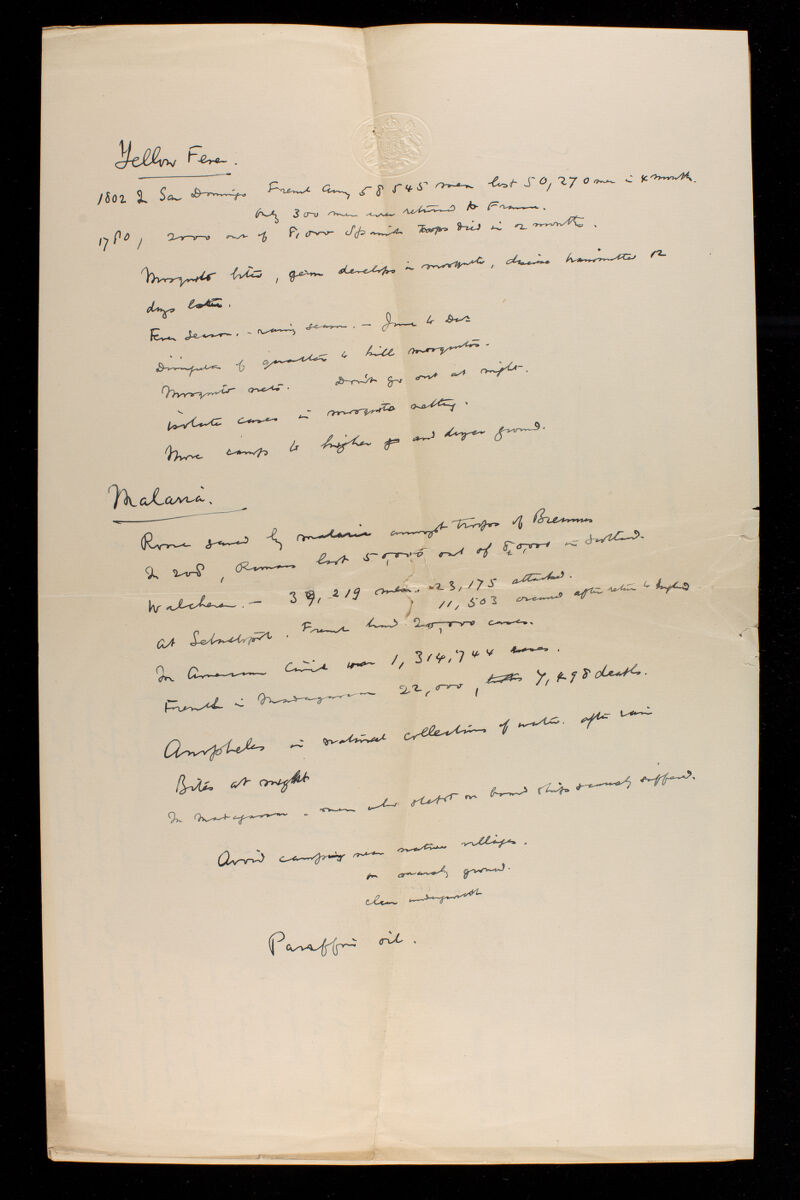 Yellow Fever.
1802 In San Domingo French Army 58545 men lost 50,270 men in 4 months.
Only 300 men were returned to France.
1780, 2000 out of 8,000 Spanish troops died in 2 months.
Mosquito bites, germ develops in mosquito, disease transmitted 12
days later.
Fever season. - rainy season. - June to Dec
of quarters to kill mosquitos.
Mosquito nets. Don't go out at night.
isolate cases in mosquito netting.
Move camps to higher and dryer ground.
Malaria.
Rome saved by malaria amongst troops of Brennus
In 208, Romans lost 50,000 out of 80,000 in Scotland.
Walcheren. - 39,219 men. 23,175 attacked.
11,503 occurred after return to England
At Sebastopol. French had 20,000 cases.
In American Civil war 1,314,744 cases.
French in Madagascar 22,000, 7,498 deaths.
Anopheles in natural collections of water. after rain
Bites at night
In Madagascar - men who slept on board ships scarcely suffered.
Avoid camping near native villages.
on marshy ground.
clear undergrowth
Paraffin oil.